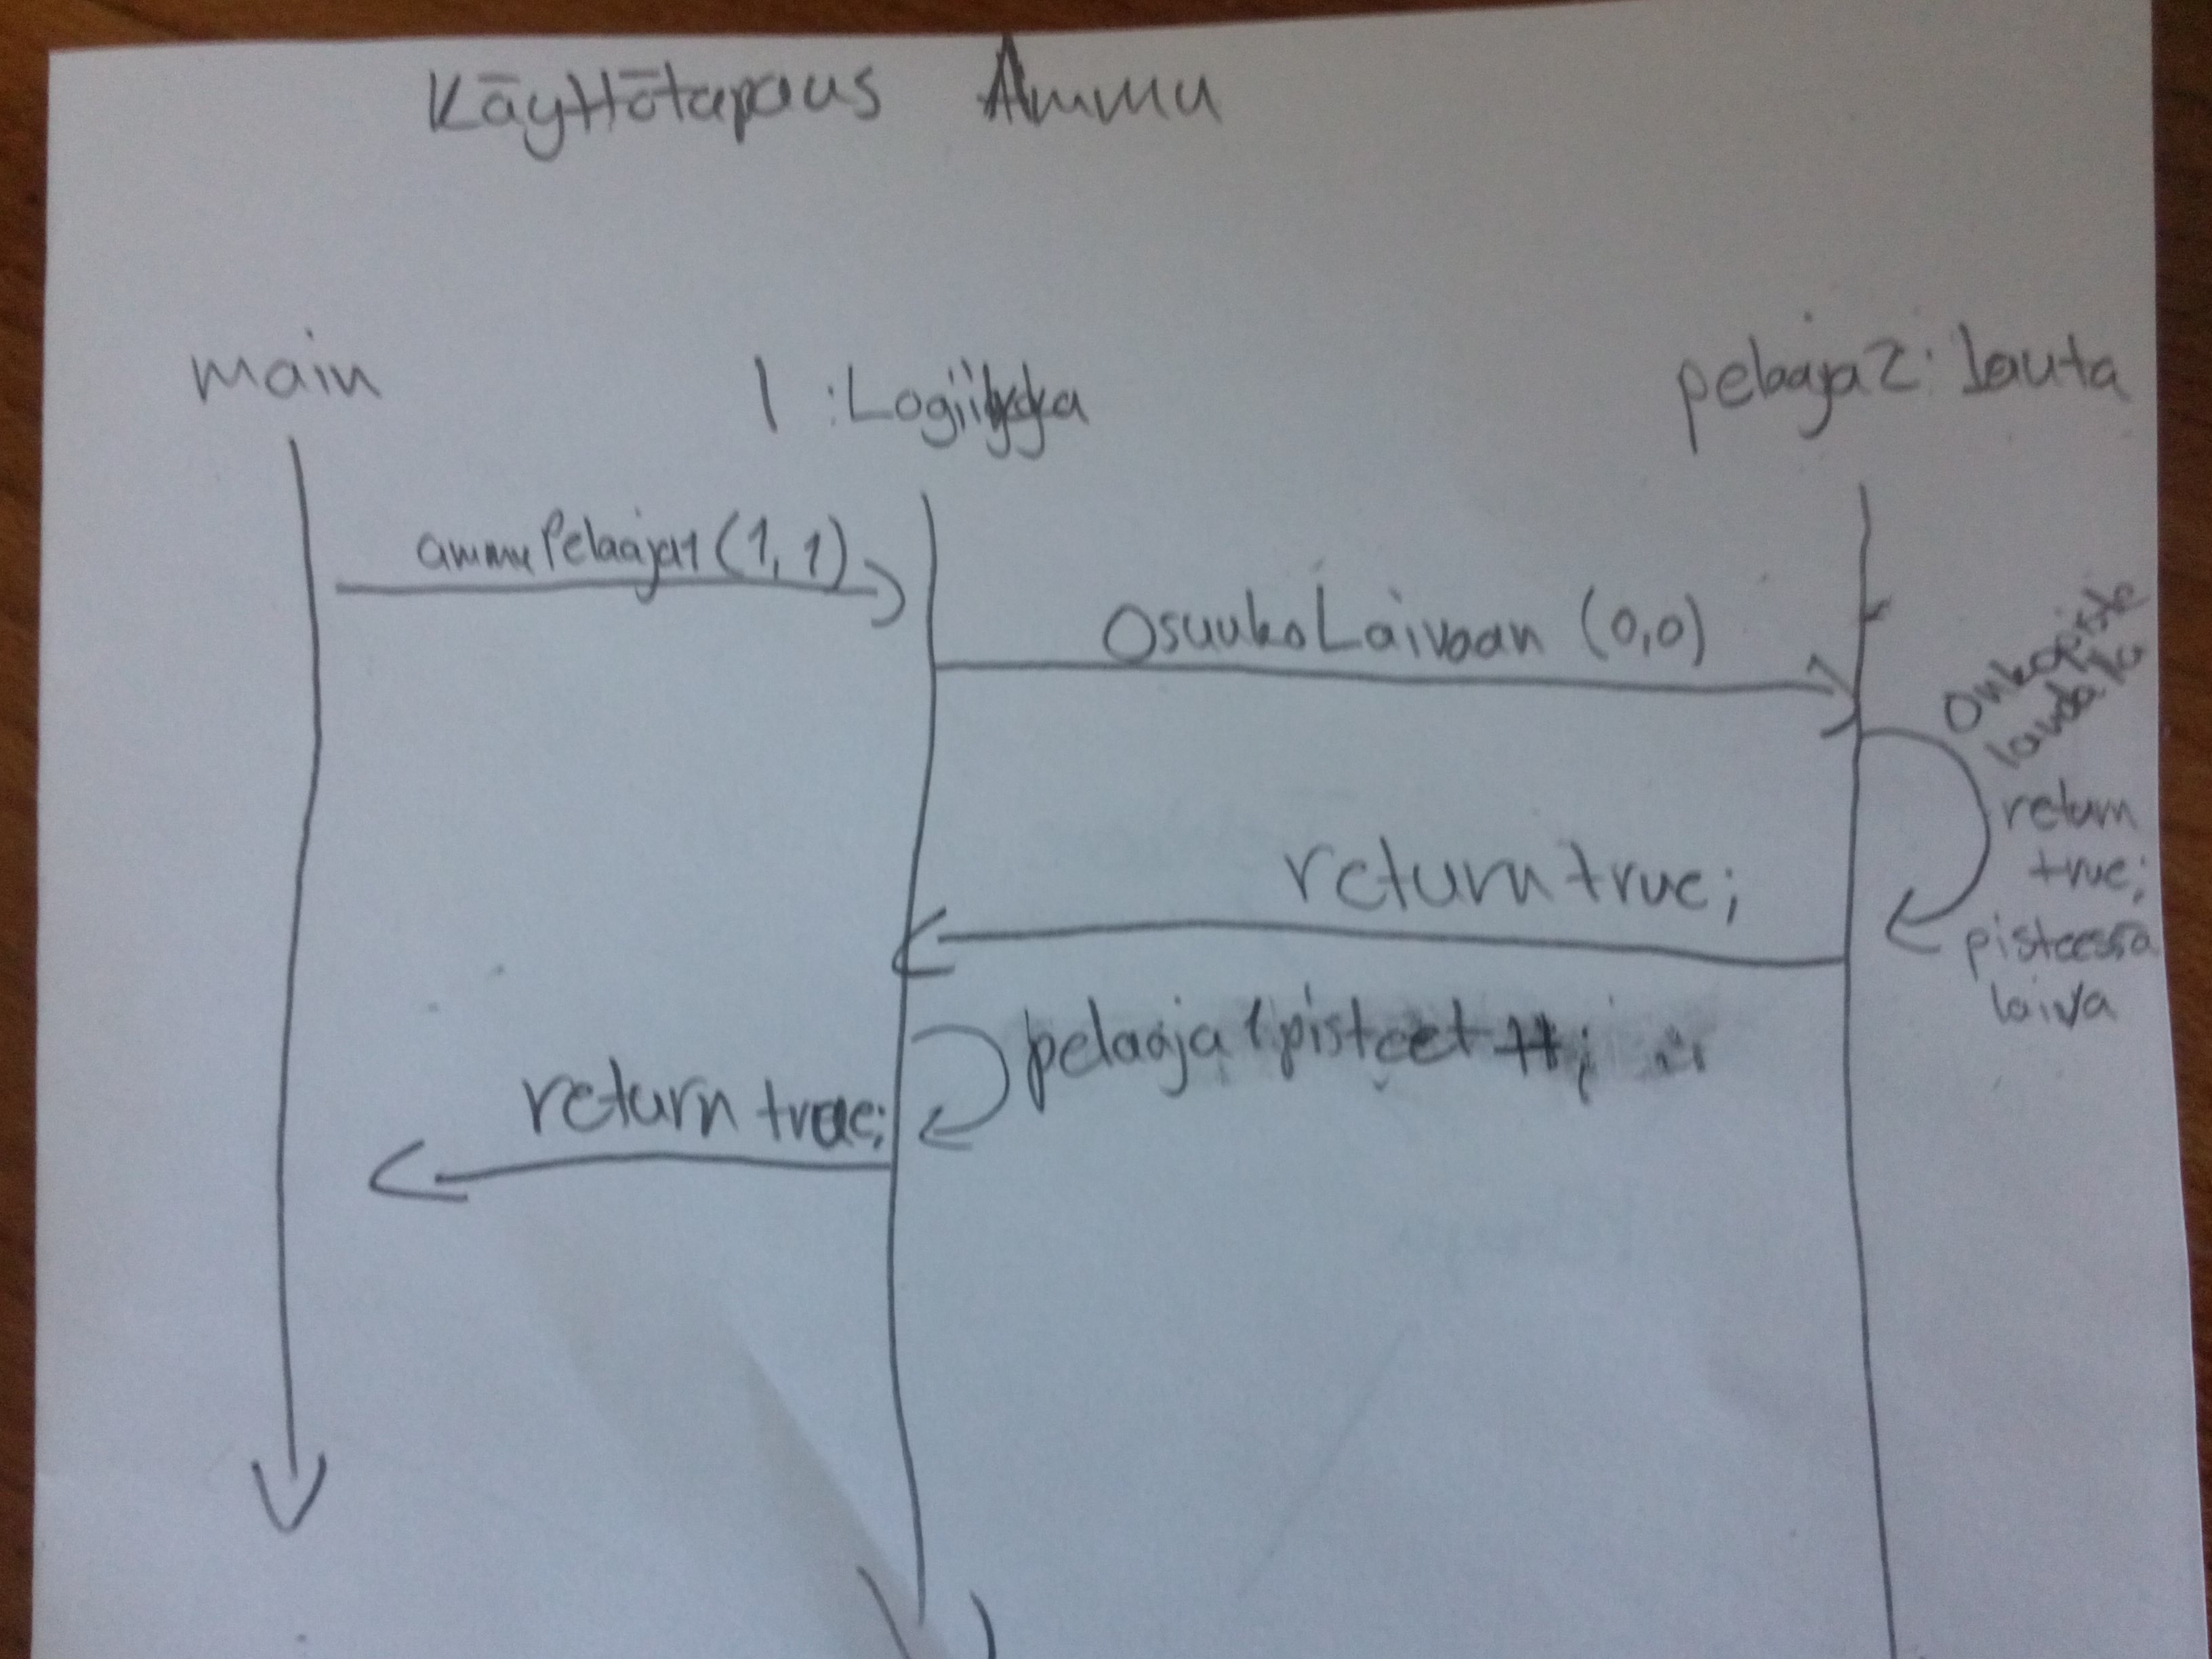 Käyttötapaus Ammu
main
l :Logiikka
pelaaja2: lauta
ammuPelaaja1(1,1)
OsuukoLaivaan (0,0)
Onkopiste
laudalla
return
true;
pisteessä
laiva
return true;
pelaaja1pisteet++;
return true;